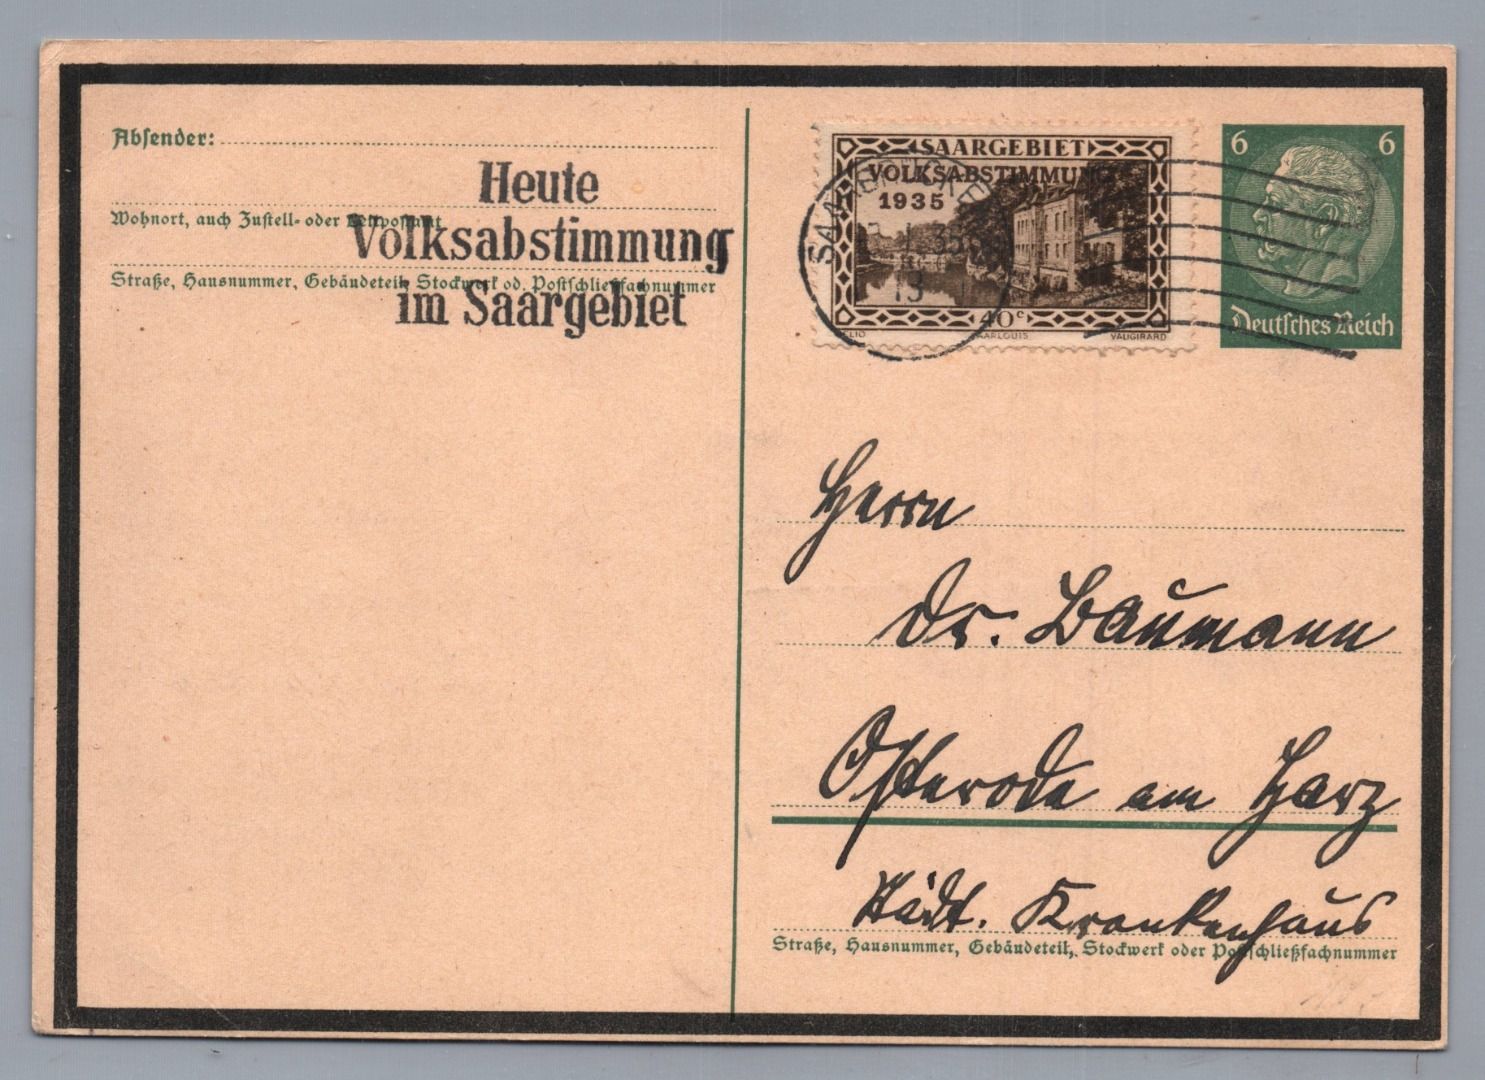 Absender:
Heute
Wohnort, auch Zustell- oder Leitpostamt
Volksabstimmung
Straße, Hausnummer, Gebäudeteil, Stockwerk od. Postschließfachnummer
im Saargebiet
SAARGEBIET
VOLKSABSTIMMUNG
1935
40c
SAARLOUIS
VAUGIRARD
6 6
Deutsches Reich
Herrn
Dr. Baumann
Osterode am Harz
Städt. Krankenhaus
Straße, Hausnummer, Gebäudeteil, Stockwerk oder Postschließfachnummer